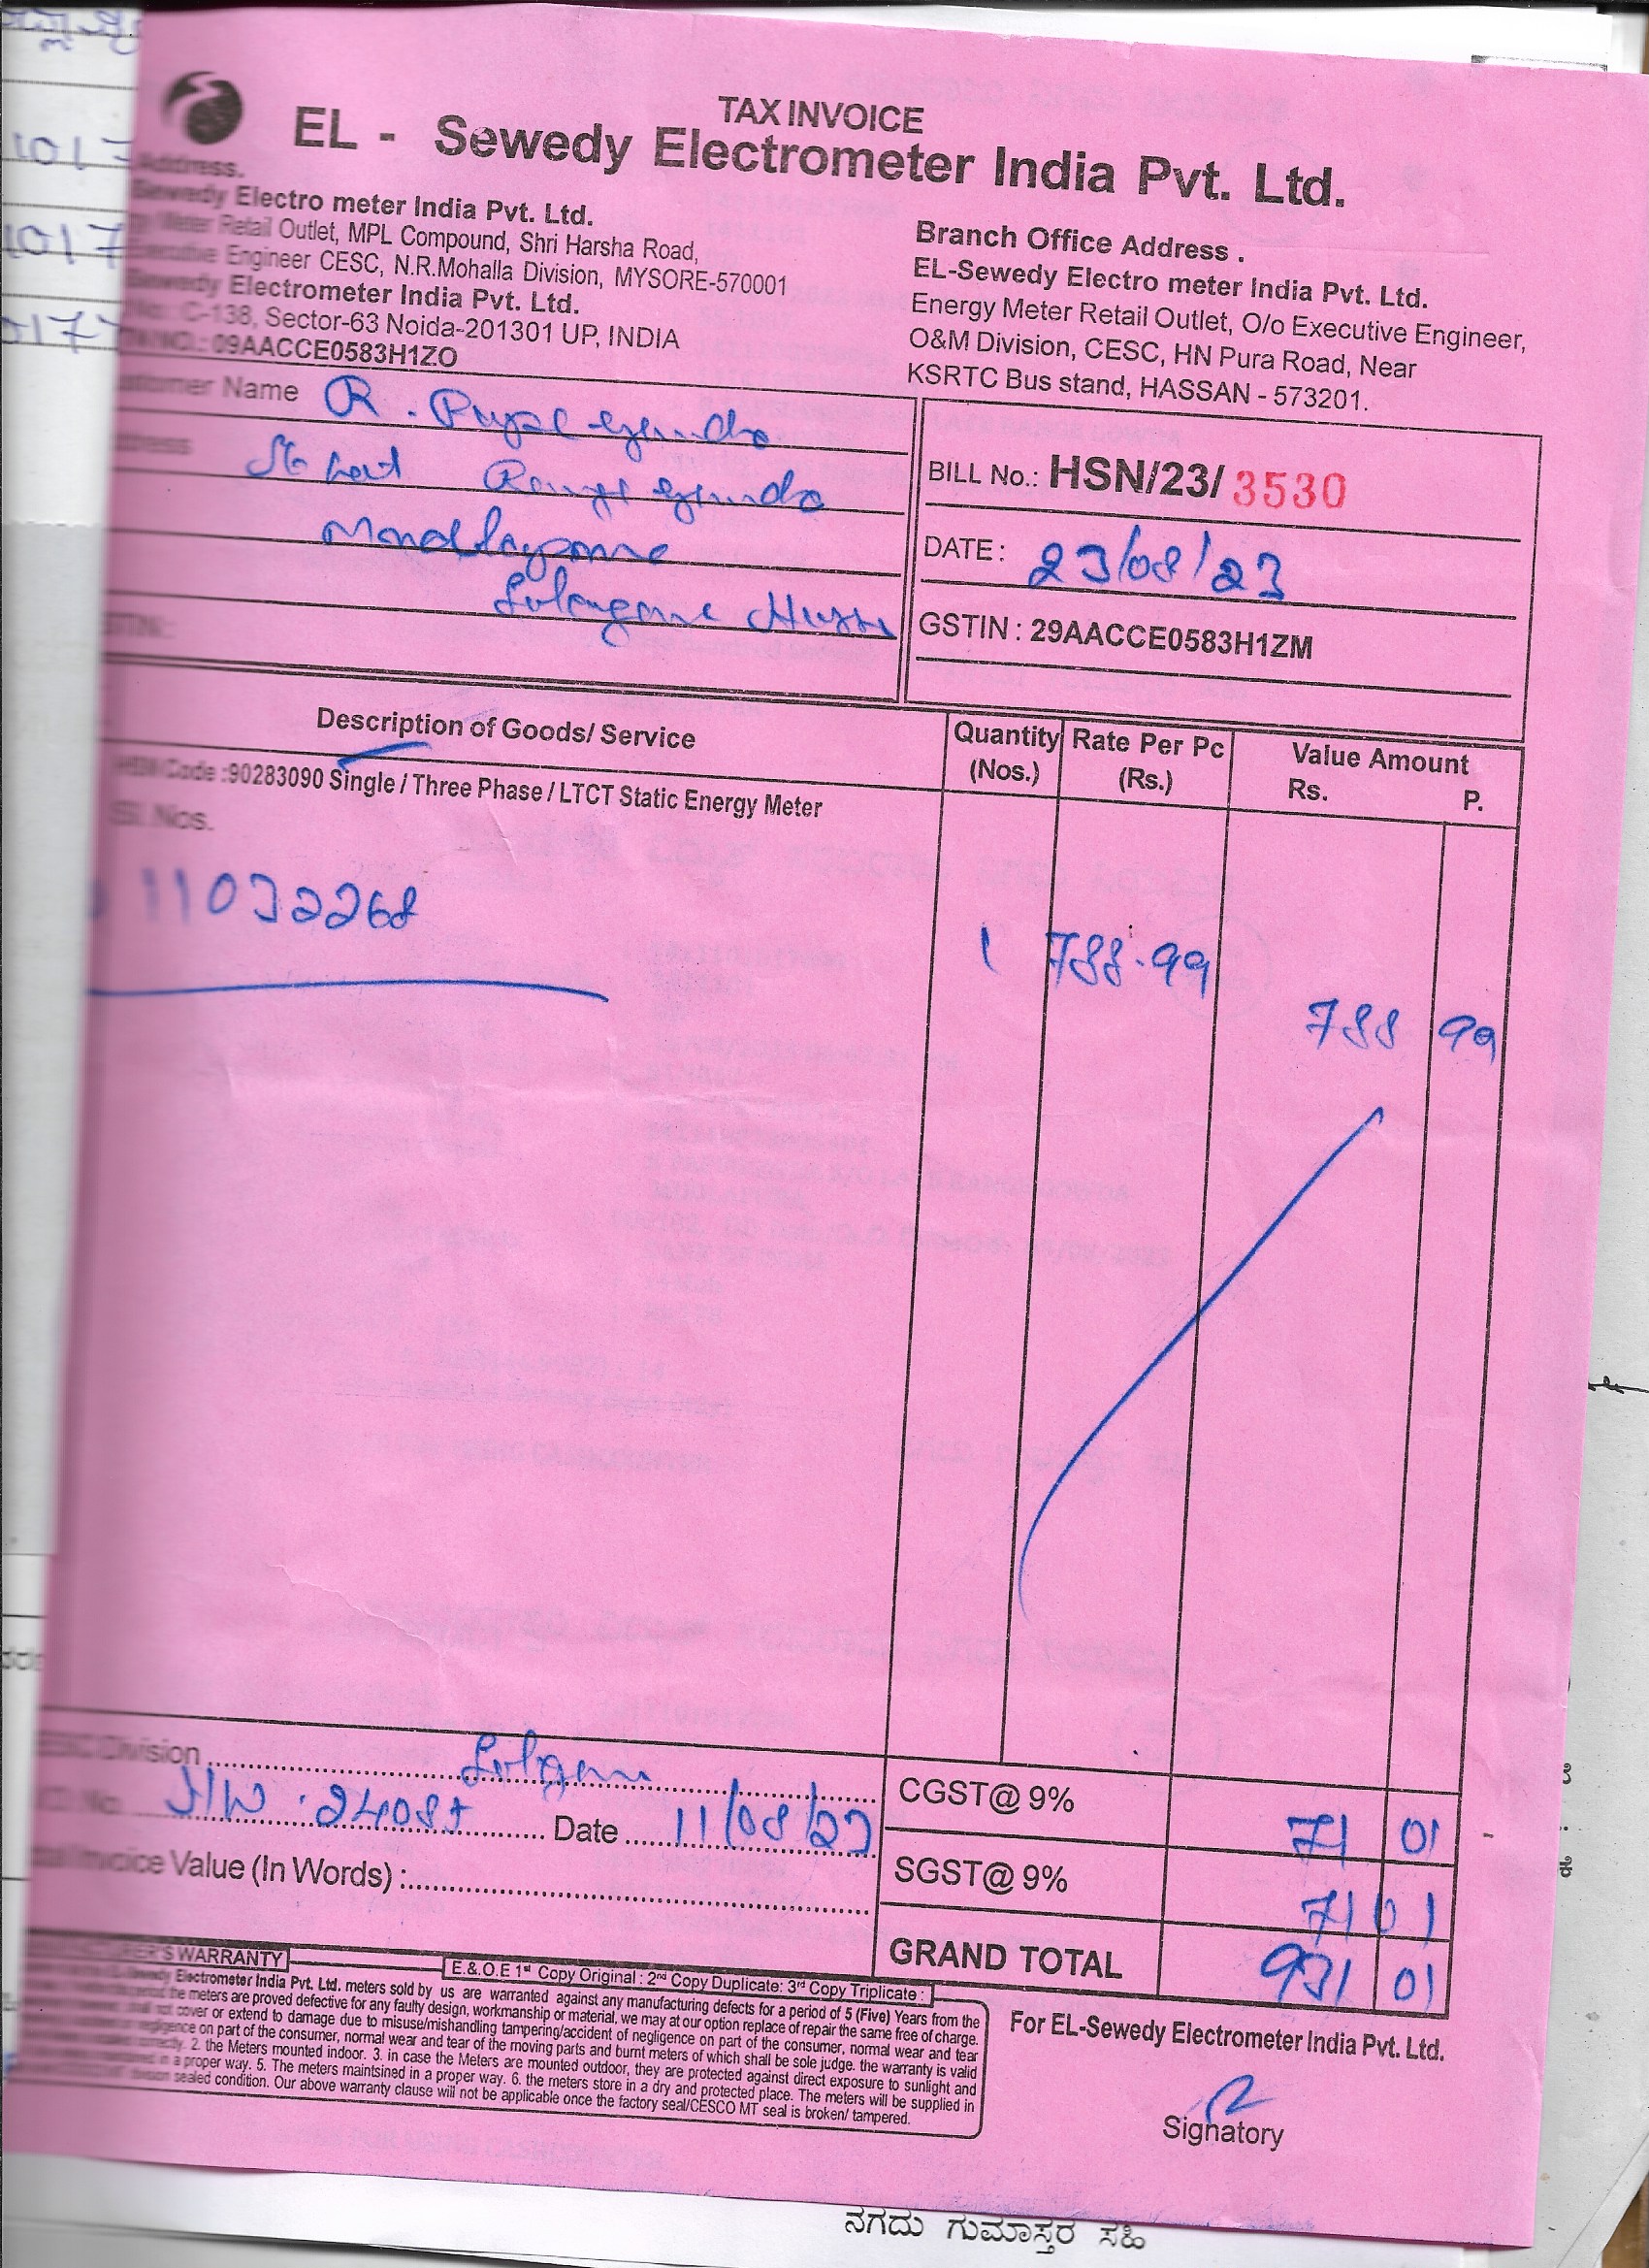 TAX INVOICE
EL - Sewedy Electrometer India Pvt. Ltd.
Address.
Sewedy Electro meter India Pvt. Ltd.
Meter Retail Outlet, MPL Compound, Shri Harsha Road,
Executive Engineer CESC, N.R.Mohalla Division, MYSORE-570001
Sewedy Electrometer India Pvt. Ltd.
C-138, Sector-63 Noida-201301 UP, INDIA
09AACCE0583H1ZO
Branch Office Address .
EL-Sewedy Electro meter India Pvt. Ltd.
Energy Meter Retail Outlet, O/o Executive Engineer,
O&M Division, CESC, HN Pura Road, Near
KSRTC Bus stand, HASSAN - 573201.
Customer Name R.
BILL No.: HSN/23/ 3530
DATE : 23/08/23
GSTIN : 29AACCE0583H1ZM
Description of Goods/ Service
Quantity (Nos.)
Rate Per Pc (Rs.)
Value Amount
Rs. P.
HSN Code :90283090 Single / Three Phase / LTCT Static Energy Meter
Sl. Nos.
11032268
1 788.99
788 99
Division
Date 11/08/23
Invoice Value (In Words) :
CGST@ 9% 71 01
SGST@ 9% 71 01
GRAND TOTAL 931 01
WARRANTY
E.& O.E 1st Copy Original : 2nd Copy Duplicate: 3rd Copy Triplicate :
Electrometer India Pvt. Ltd. meters sold by us are warranted against any manufacturing defects for a period of 5 (Five) Years from the
the meters are proved defective for any faulty design, workmanship or material, we may at our option replace of repair the same free of charge.
not cover or extend to damage due to misuse/mishandling tampering/accident of negligence on part of the consumer, normal wear and tear
negligence on part of the consumer, normal wear and tear of the moving parts and burnt meters of which shall be sole judge. the warranty is valid
2. the Meters mounted indoor. 3. in case the Meters are mounted outdoor, they are protected against direct exposure to sunlight and
in a proper way. 5. The meters maintsined in a proper way. 6. the meters store in a dry and protected place. The meters will be supplied in
sealed condition. Our above warranty clause will not be applicable once the factory seal/CESCO MT seal is broken/ tampered.
For EL-Sewedy Electrometer India Pvt. Ltd.
Signatory
ನಗದು ಗುಮಾಸ್ತರ ಸಹಿ